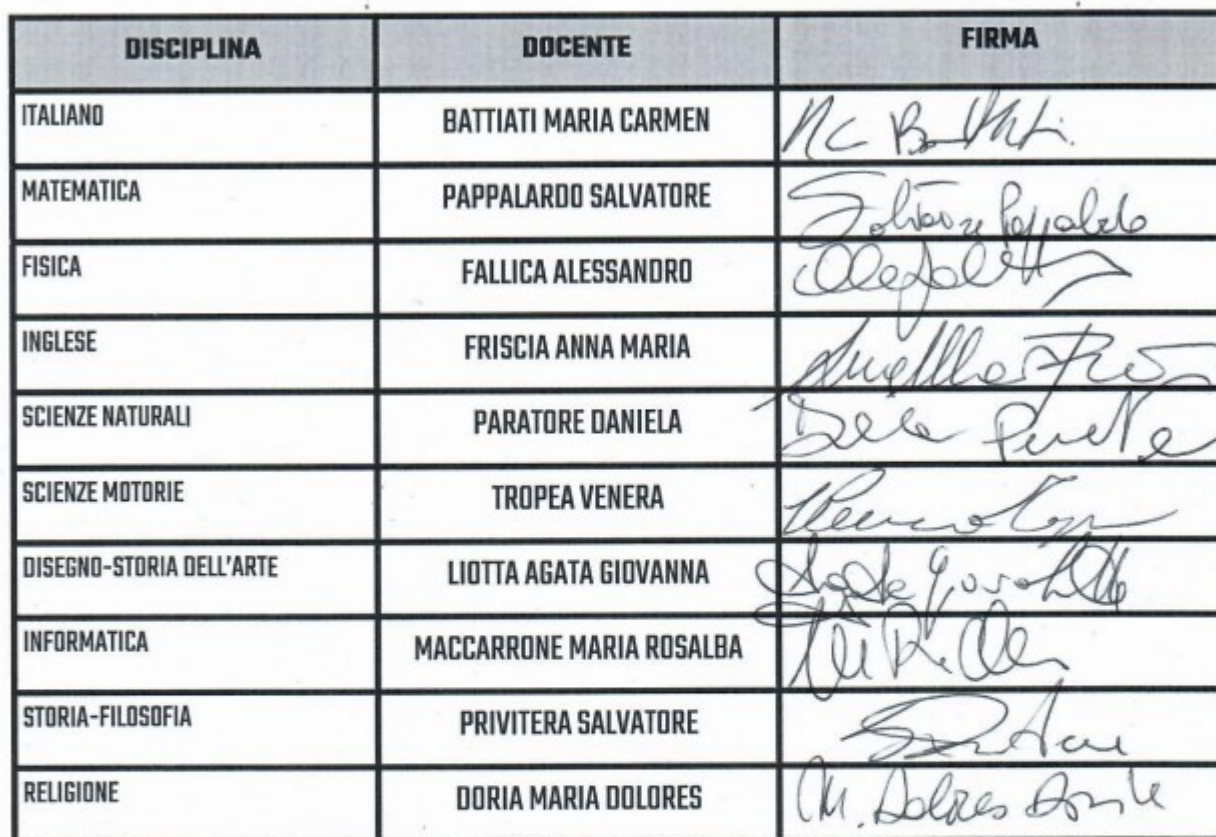 DISCIPLINA DOCENTE FIRMA
ITALIANO BATTIATI MARIA CARMEN
MATEMATICA PAPPALARDO SALVATORE Salvatore Pappalardo
FISICA FALLICA ALESSANDRO
INGLESE FRISCIA ANNA MARIA
SCIENZE NATURALI PARATORE DANIELA
SCIENZE MOTORIE TROPEA VENERA
DISEGNO-STORIA DELL'ARTE LIOTTA AGATA GIOVANNA
INFORMATICA MACCARRONE MARIA ROSALBA
STORIA-FILOSOFIA PRIVITERA SALVATORE
RELIGIONE DORIA MARIA DOLORES M. Dolores